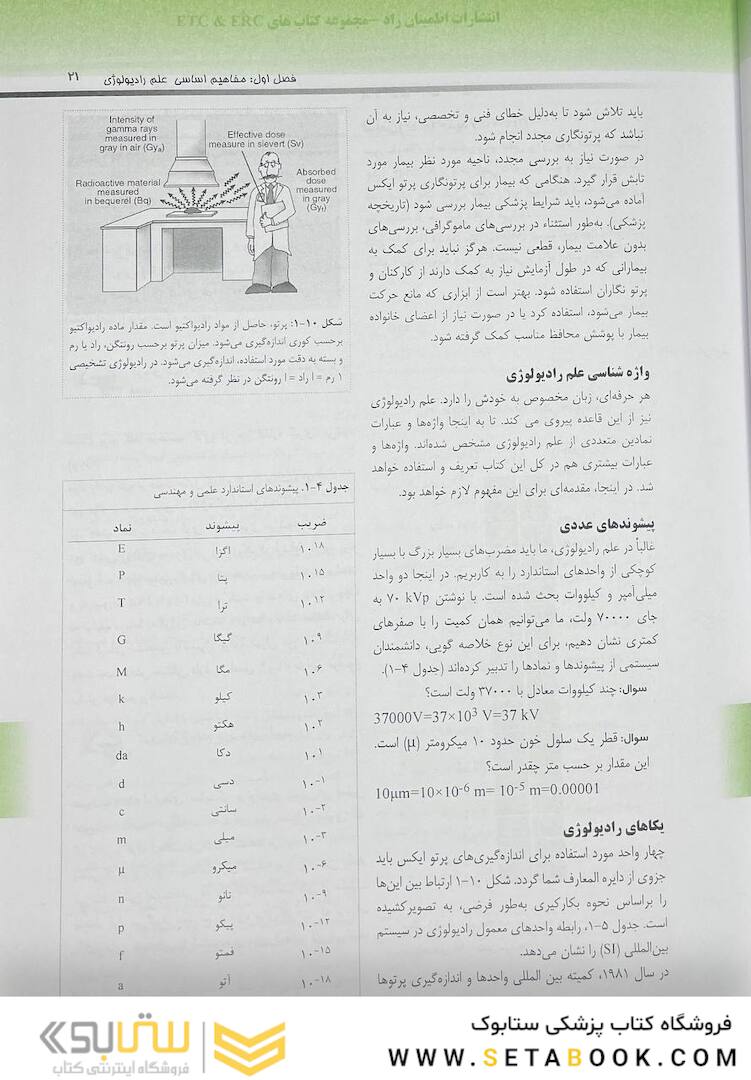 انتشارات اطمینان راد -مجموعه کتاب های ETC & ERC
فصل اول: مفاهیم اساسی علم رادیولوژی ۲۱
باید تلاش شود تا به‌دلیل خطای فنی و تخصصی، نیاز به آن
نباشد که پرتونگاری مجدد انجام شود.
در صورت نیاز به بررسی مجدد، ناحیه مورد نظر بیمار مورد
تابش قرار گیرد. هنگامی که بیمار برای پرتونگاری پرتو ایکس
آماده می‌شود، باید شرایط پزشکی بیمار بررسی شود (تاریخچه
پزشکی). به‌طور استثناء در بررسی‌های ماموگرافی، بررسی‌های
بدون علامت بیمار، قطعی نیست. هرگز نباید برای کمک به
بیمارانی که در طول آزمایش نیاز به کمک دارند از کارکنان و
پرتو نگاران استفاده شود. بهتر است از ابزاری که مانع حرکت
بیمار می‌شود، استفاده کرد یا در صورت نیاز از اعضای خانواده
بیمار با پوشش محافظ مناسب کمک گرفته شود.
واژه شناسی علم رادیولوژی
هر حرفه‌ای، زبان مخصوص به خودش را دارد. علم رادیولوژی
نیز از این قاعده پیروی می کند. تا به اینجا واژه‌ها و عبارات
نمادین متعددی از علم رادیولوژی مشخص شده‌اند. واژه‌ها و
عبارات بیشتری هم در کل این کتاب تعریف و استفاده خواهد
شد. در اینجا، مقدمه‌ای برای این مفهوم لازم خواهد بود.
پیشوندهای عددی
غالباً در علم رادیولوژی، ما باید مضرب‌های بسیار بزرگ با بسیار
کوچکی از واحدهای استاندارد را به کاربریم. در اینجا دو واحد
میلی‌آمپر و کیلووات بحث شده است. با نوشتن ۷۰ kVp به
جای ۷۰۰۰۰ ولت، ما می‌توانیم همان کمیت را با صفرهای
کمتری نشان دهیم، برای این نوع خلاصه گویی، دانشمندان
سیستمی از پیشوندها و نمادها را تدبیر کرده‌اند (جدول ۴-۱).
سوال: چند کیلووات معادل با ۳۷۰۰۰ ولت است؟
37000V=37×10³ V=37 kV
سوال: قطر یک سلول خون حدود ۱۰ میکرومتر (µ) است.
این مقدار بر حسب متر چقدر است؟
10µm=10×10⁻⁶ m= 10⁻⁵ m=0.00001
یکاهای رادیولوژی
چهار واحد مورد استفاده برای اندازه‌گیری‌های پرتو ایکس باید
جزوی از دایره المعارف شما گردد. شکل ۱۰-۱ ارتباط بین این‌ها
را براساس نحوه بکارگیری به‌طور فرضی، به تصویرکشیده
است. جدول ۵-۱، رابطه واحدهای معمول رادیولوژی در سیستم
بین‌المللی (SI) را نشان می‌دهد.
در سال ۱۹۸۱، کمیته بین المللی واحدها و اندازه‌گیری پرتوها
Intensity of
gamma rays
measured in
gray in air (Gyₐ)
Effective dose
measure in sievert (Sv)
Radioactive material
measured
in bequerel (Bq)
Absorbed
dose
measured
in gray
(Gyₜ)
شکل ۱۰-۱: پرتو، حاصل از مواد رادیواکتیو است. مقدار ماده رادیواکتیو
برحسب کوری اندازه‌گیری می‌شود. میزان پرتو برحسب رونتگن، راد یا رم
و بسته به دقت مورد استفاده، اندازه‌گیری می‌شود. در رادیولوژی تشخیصی
۱ رم = ۱ راد = ۱ رونتگن در نظر گرفته می‌شود.
جدول ۴-۱. پیشوندهای استاندارد علمی و مهندسی
ضریب پیشوند نماد
۱۰¹⁸ اگزا E
۱۰¹⁵ پتا P
۱۰¹² ترا T
۱۰⁹ گیگا G
۱۰⁶ مگا M
۱۰³ کیلو k
۱۰² هکتو h
۱۰¹ دکا da
۱۰⁻¹ دسی d
۱۰⁻² سانتی c
۱۰⁻³ میلی m
۱۰⁻⁶ میکرو µ
۱۰⁻⁹ نانو n
۱۰⁻¹² پیکو p
۱۰⁻¹⁵ فمتو f
۱۰⁻¹⁸ آتو a
فروشگاه کتاب پزشکی ستابوک
WWW.SETABOOK.COM
ستابوک
فروشگاه اینترنتی کتاب